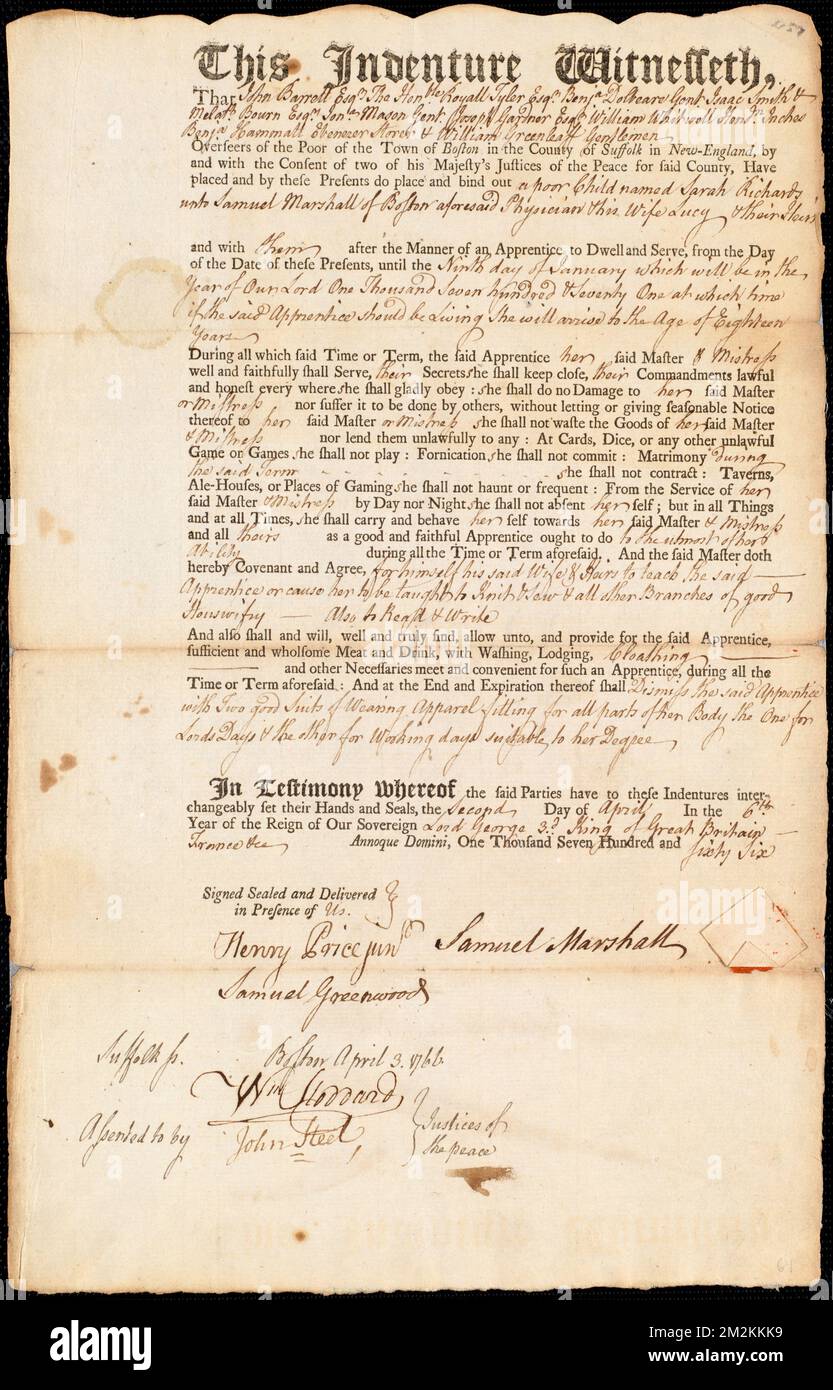 This Indenture Witnesseth,
That John Barrett Esqr. The Honble. Royall Tyler Esqr. Benja. Dolbeare Gent. Isaac Smith &
Melath. Bourn Esqrs. Jona. Mason Gent. Joseph Gardner Esqr. William Whitwell Hendn. Inches
Benja. Hammatt Ebenezer Storer & William Greenleaff Gentlemen
Overseers of the Poor of the Town of Boston in the County of Suffolk in New-England, by
and with the Consent of two of his Majesty's Justices of the Peace for said County, Have
placed and by these Presents do place and bind out a poor Child named Sarah Richards
unto Samuel Marshall of Boston aforesaid Physician & his Wife Lucy & their Heirs
and with them after the Manner of an Apprentice to Dwell and Serve, from the Day
of the Date of these Presents, until the Ninth day of January which will be in the
Year of Our Lord One Thousand Seven hundred & Seventy One at which time
if the said Apprentice should be Living She will arrive to the Age of Eighteen
Years
During all which said Time or Term, the said Apprentice her said Master & Mistress
well and faithfully shall Serve, their Secrets she shall keep close, their Commandments lawful
and honest every where she shall gladly obey : she shall do no Damage to her said Master
or Mistress nor suffer it to be done by others, without letting or giving seasonable Notice
thereof to her said Master or Mistress she shall not waste the Goods of her said Master
& Mistress nor lend them unlawfully to any : At Cards, Dice, or any other unlawful
Game or Games she shall not play : Fornication she shall not commit : Matrimony during
the said Term she shall not contract : Taverns,
Ale-Houses, or Places of Gaming she shall not haunt or frequent : From the Service of her
said Master & Mistress by Day nor Night she shall not absent her self ; but in all Things
and at all Times, she shall carry and behave her self towards her said Master & Mistress
and all theirs as a good and faithful Apprentice ought to do to the utmost of her
Ability during all the Time or Term aforesaid. And the said Master doth
hereby Covenant and Agree, for himself his said Wife & Heirs to teach the said —
Apprentice or cause her to be taught to Knit & Sew & all other Branches of good
Houswifry — Also to Read & Write
And also shall and will, well and truly find, allow unto, and provide for the said Apprentice,
sufficient and wholsome Meat and Drink, with Washing, Lodging, Cloathing —
— and other Necessaries meet and convenient for such an Apprentice, during all the
Time or Term aforesaid : And at the End and Expiration thereof shall Dismiss the said Apprentice
with Two good Suits of Wearing Apparel fitting for all parts of her Body the One for
Lords Days & the other for Working days suitable to her Degree
In Testimony whereof the said Parties have to these Indentures inter-
changeably set their Hands and Seals, the Second Day of April In the 6th
Year of the Reign of Our Sovereign Lord George 3d. King of Great Britain —
France &ca Annoque Domini, One Thousand Seven Hundred and Sixty Six
Signed Sealed and Delivered
in Presence of Us.
Henry Price junr Samuel Marshall
Samuel Greenwood
Suffolk ss. Boston April 3. 1766
Assented to by Wm Stoddard
John Steel, Justices of
the peace
alamy
Image ID: 2M2KKK9
www.alamy.com